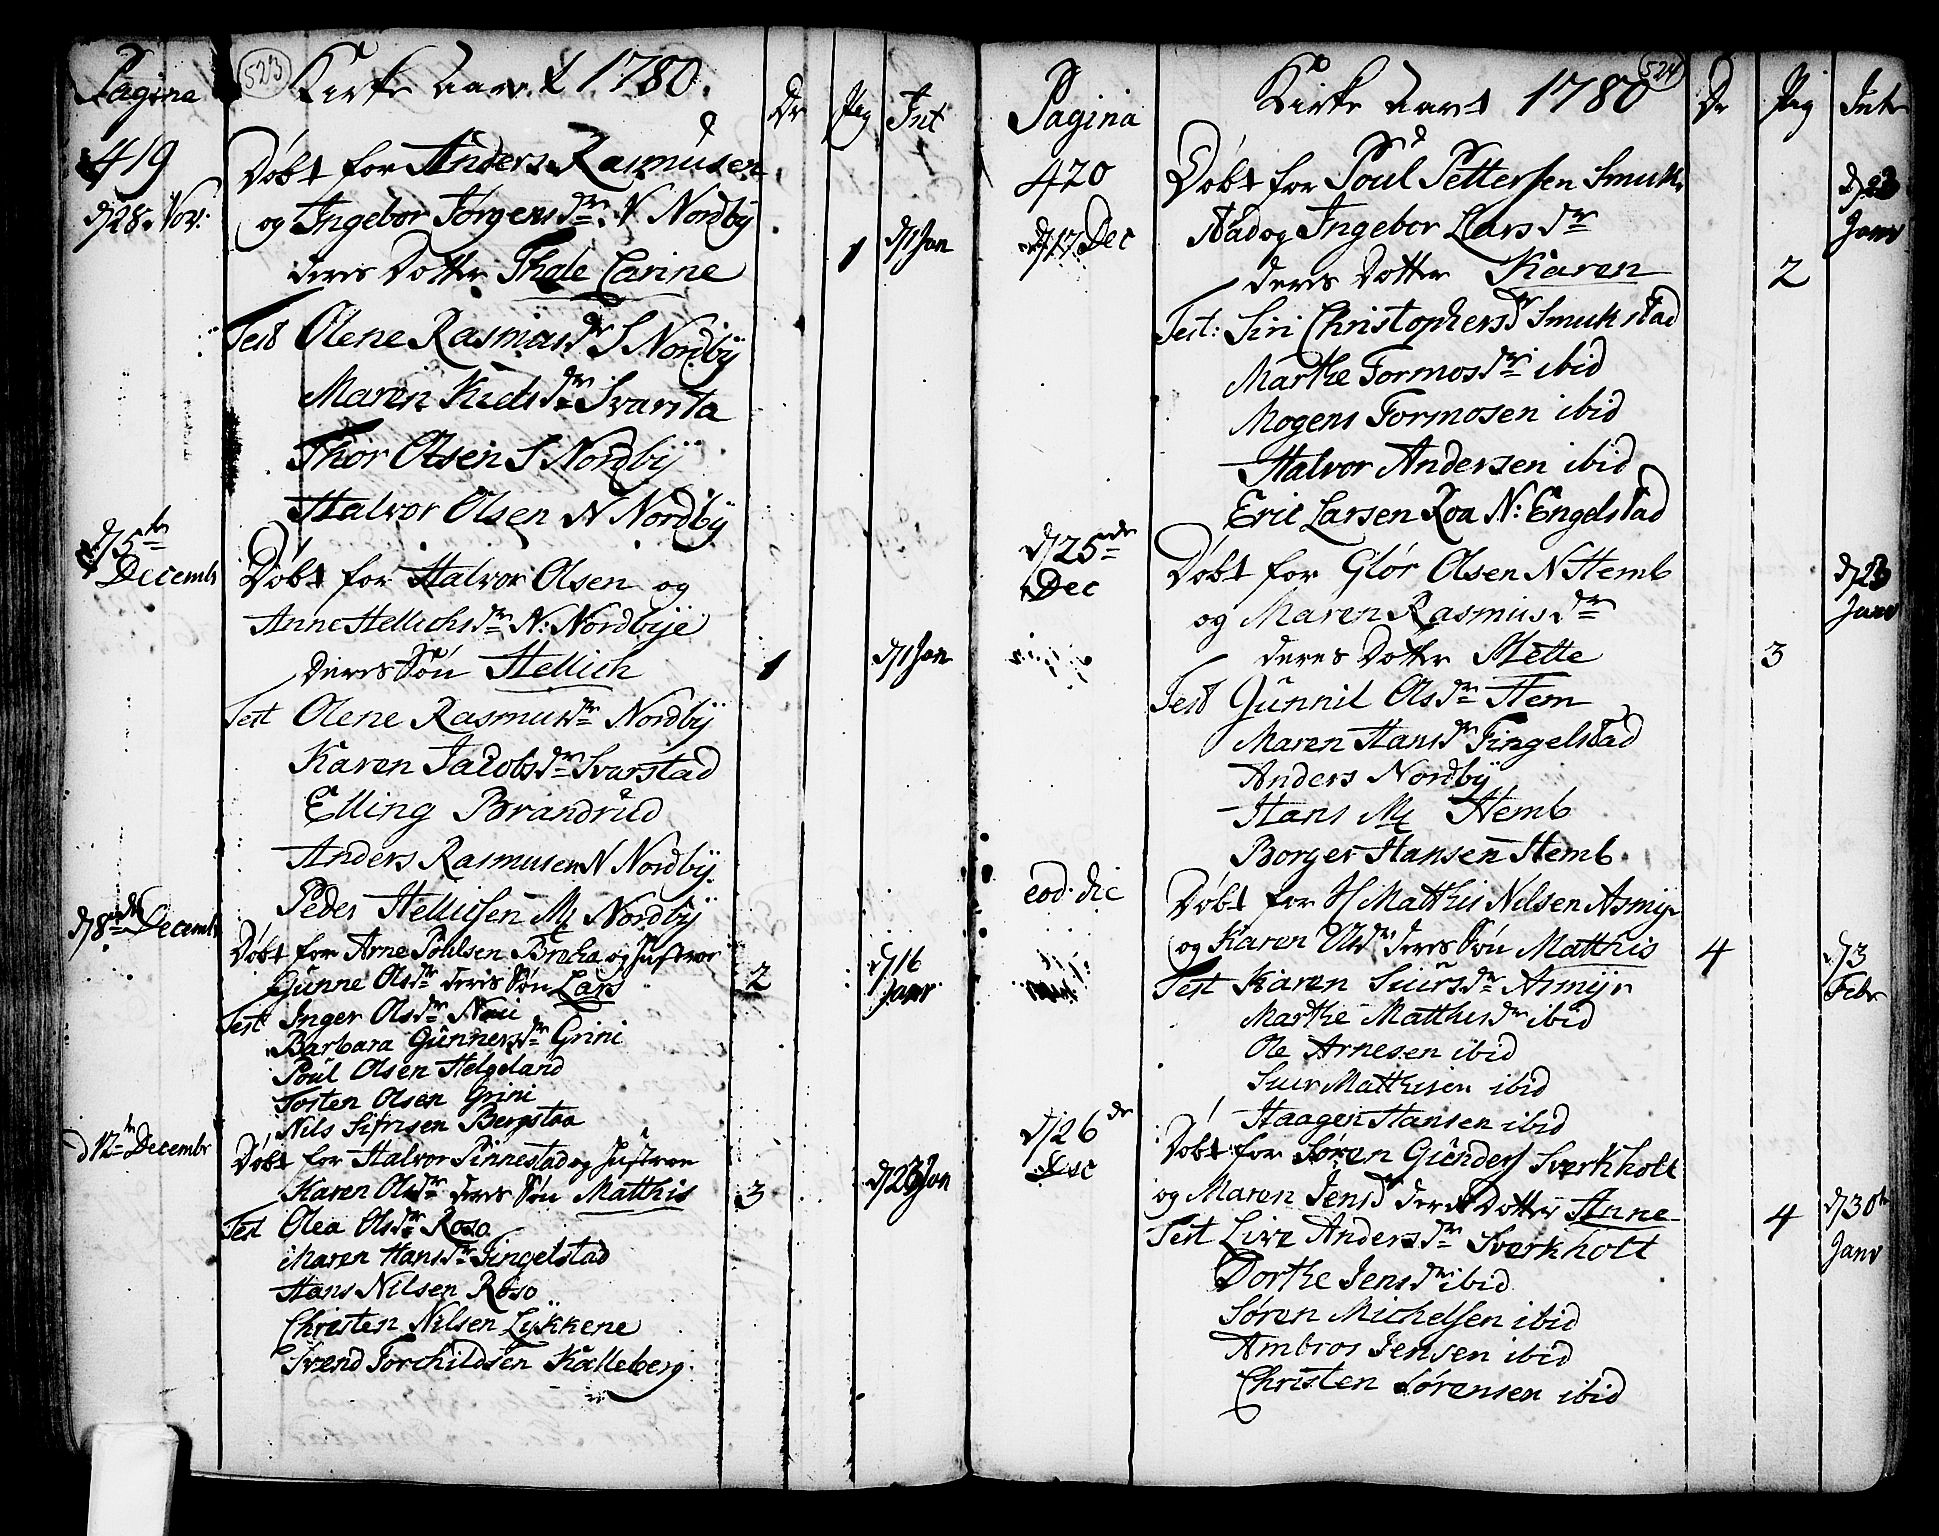 Pagina
523
Kirke Aaret 1780.
Dr
Pig
Int
419
d/28. Nov:
Døbt for Anders Rasmusen
og Ingebor Jørgens dr. N Nordbÿ
deris Dotter Thale Carine
1
d/1 Jan
Test Olene Rasmus dr S Nordbÿ
Maren Kiels dr Svarsta
Thor Olsen S Nordbÿ
Halvor Olsen N Nordbÿ
d/5te
Decembr
Døbt for Halvor Olsen og
Anne Hellichs dr N: Nordbÿe
deris Søn Hellich
1
d/1 Jan
Test Olene Rasmus dr Nordbÿ
Karen Jacobs dr Svarstad
Elling Brandrud
Anders Rasmusen N Nordbÿ.
Peder Hellicsen M Nordbÿ
d/8de Decembr
Døbt for Arne Poulsen Breka og Hustroe
Gunne Ols dr deris Søn Lars
2
d/16
Janr
Test Inger Ols dr
Barbara Gunners dr Grini
Poul Olsen Helgeland
Tosten Olsen Grini
Nils Sifrisen Bergstaa
d 12te Decembr
Døbt for Halvor Finnestad og Hustroe
Karen Ols dr deris Søn Matthis
3
d/23 Jan
Test Olea Ols dr Roso
Maren Hans dr Tingelstad
Hans Nilsen Roso
Christen Nilsen Lÿkkene
Svend Torchildsen Kalleberg.
Pagina
Kirke Aaret 1780
524
Dr
Pig
Intr
420
d/17 Dec
Døbt for Poul Pettersen Smuk
stad og Ingebor Lars dr
deris Dotter Karen
2
d/23
Janr
Test: Siri Christophers dr Smukstad
Marthe Tormos dr ibid
Mogens Tormosen ibid
Halvor Andersen ibid
Eric Larsen Roa N: Engelstad
d/25de
Dec
Døbt for Glør Olsen N Hemb
og Maren Rasmus dr
deres Dotter Mette
3
d/23
Janr
Test Gunnil Ols dr Hem
Maren Hans dr Tingelstad
Anders Nordbÿ
Hans M Hemb
Borger Hansen Hemb
eod. die
Døbt for H Matthis Nilsen Asmÿr
og Karen Ols dr deris Søn Matthis
4
d/3
Febr
Test Karen Siurs dr Asmÿr
Marthe Matthis dr ibid
Ole Arnesen ibid
Siur Matthisen ibid
Haagen Hansen ibid
d/26de
Dec
Døbt for Søren Gunders Sverkholt
og Maren Jens dr deris Dotter Anne
4
d/30te
Janr
Test Live Anders dr Sverkholt
Dorthe Jens dr ibid
Søren Michelsen ibid
Ambros Jensen ibid
Christen Sørensen ibid